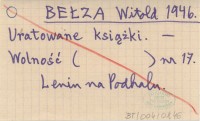 BEŁZA Witold 1946.
Uratowane książki. —
Wolność ( ) nr 17.
Lenin na Podhalu.
BJ/004/0245